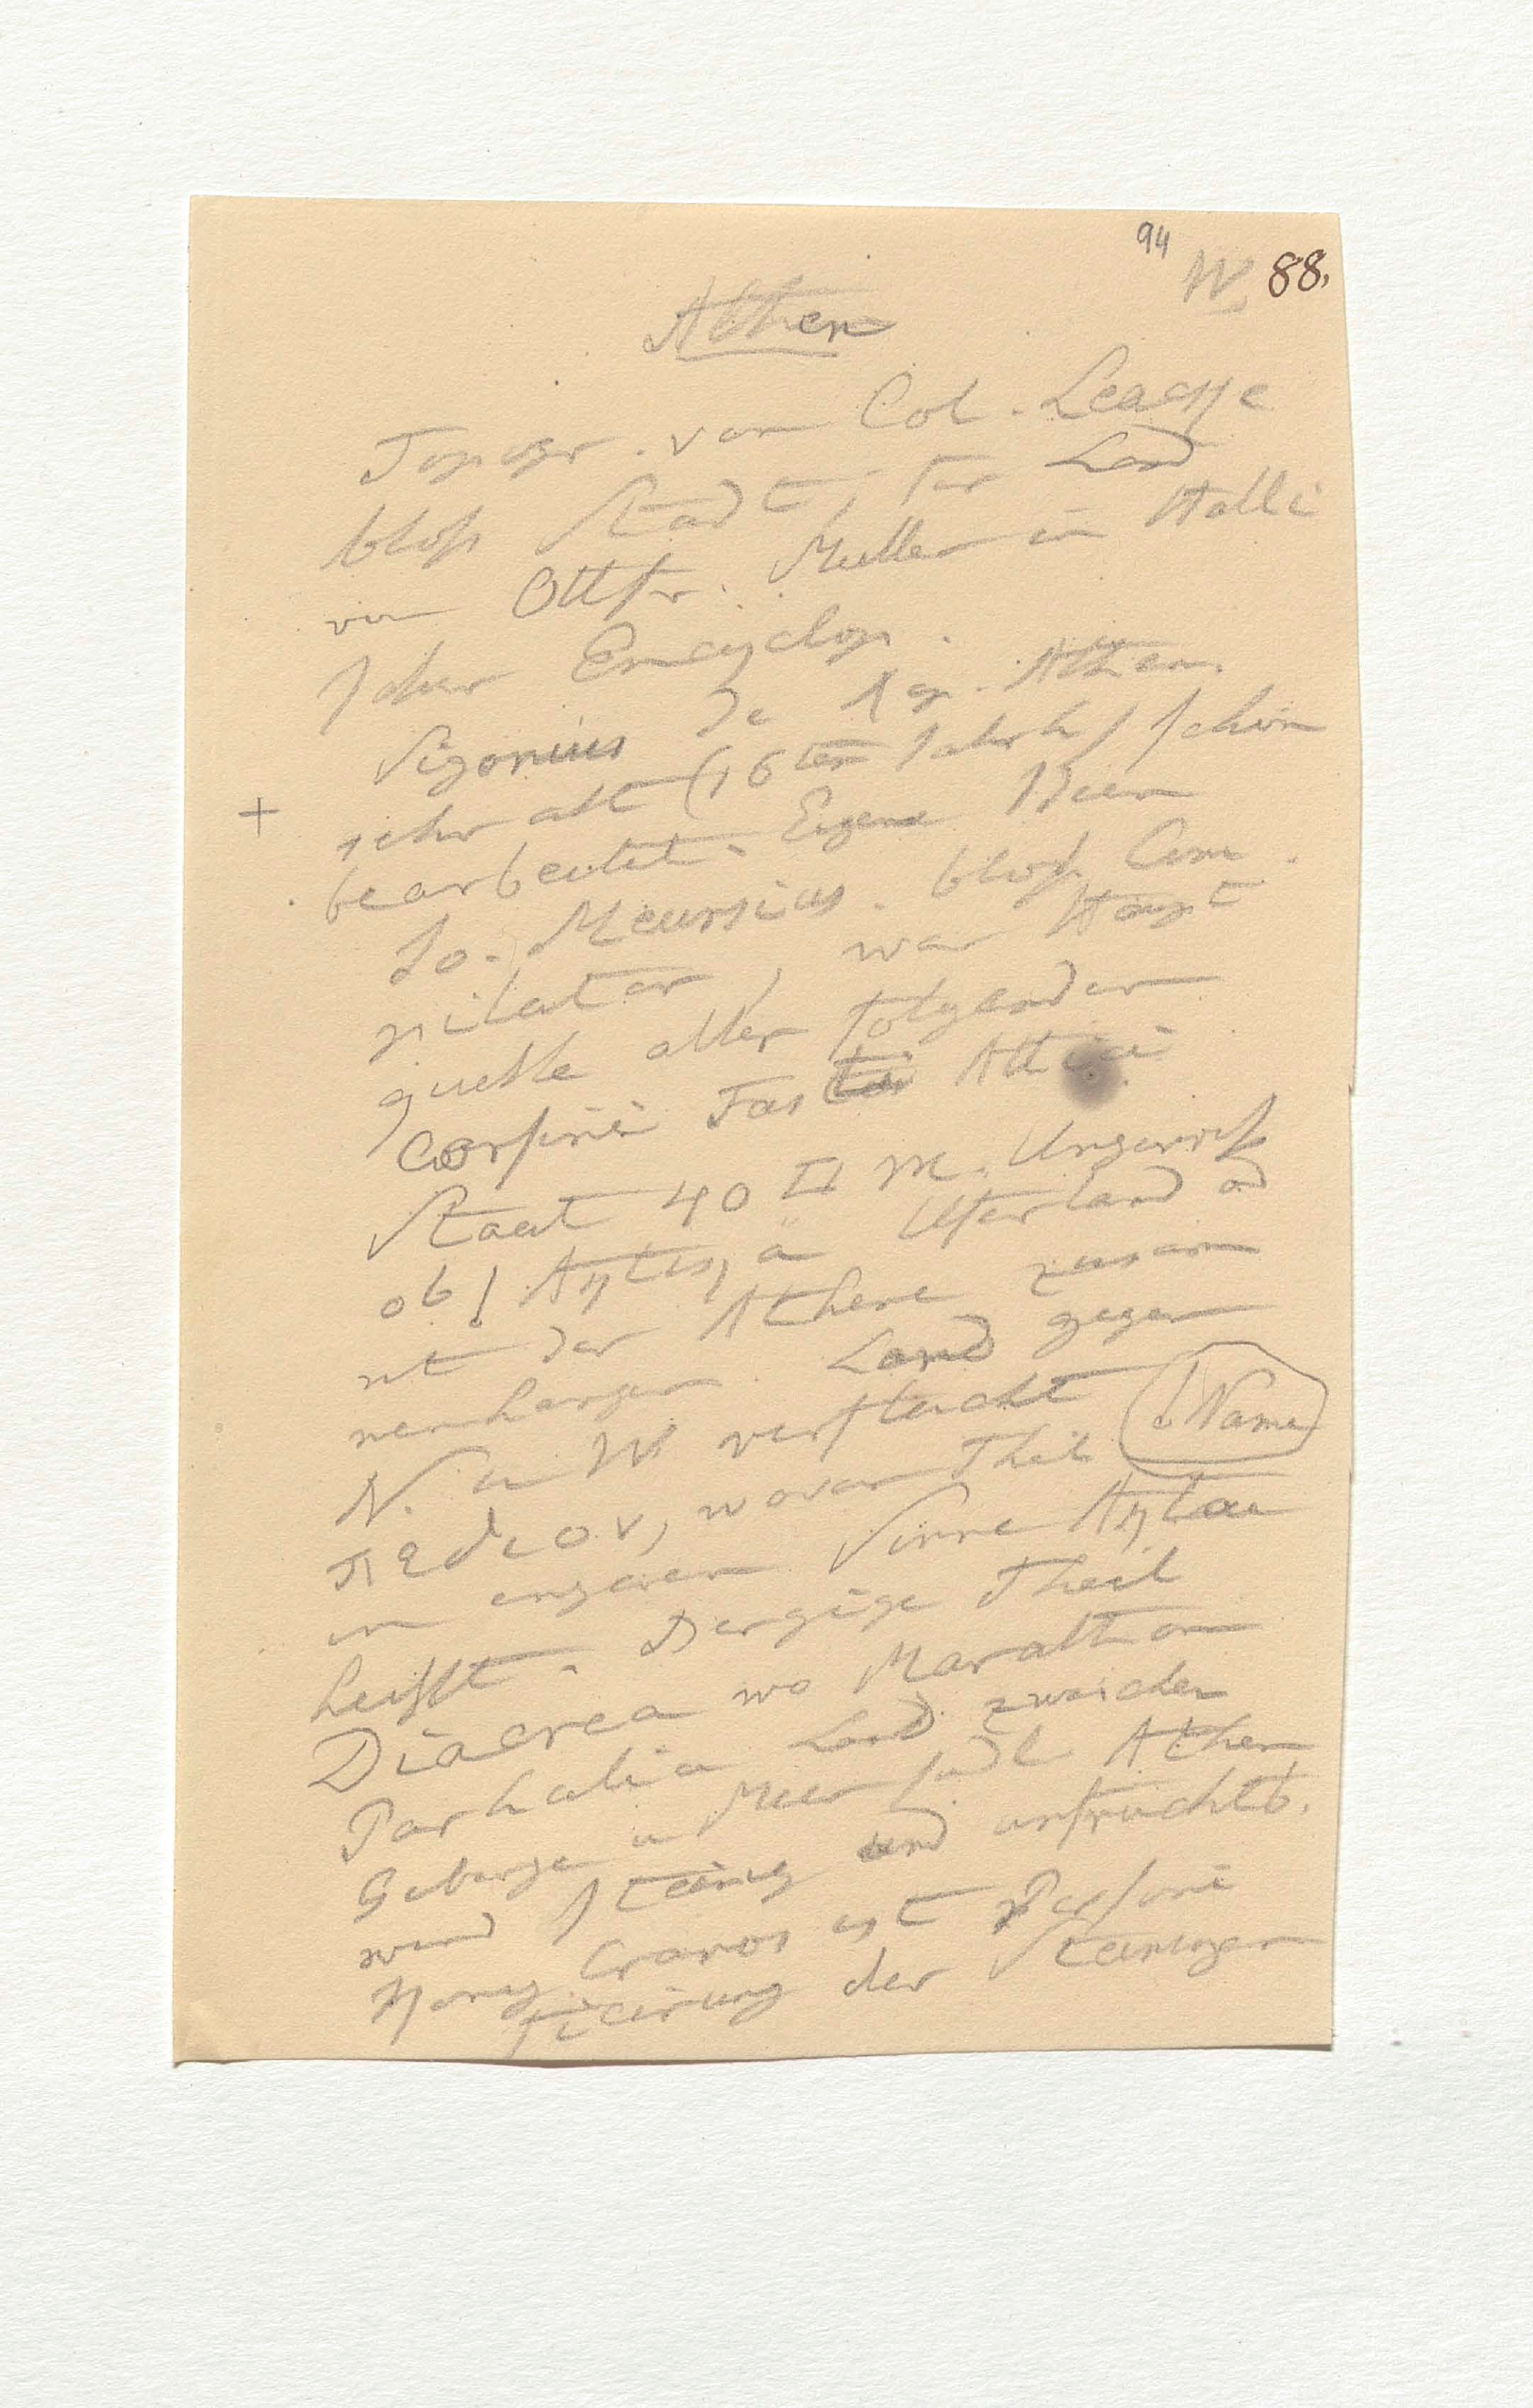 94
W. 88.
Athen
Topogr. von Col. Leacke
bloß Stadt, für Land
von Ottfr. Müller in Halli
scher Encyclop.
Sigonius de Rep. Athen.
sehr alt (16ten Jahrh) schön
+
bearbeitet. Eigene Ideen
Jo. Meursius. bloß Com
pilator, war Haupt
quelle aller folgenden
Corsini Fasti Attici
Staat 40 □ M. Ungewiß
ob Uferland od
mit der Athene zusam
menhangen. Land gegen
N. u W verflacht
Name
πεδιον, wovon Theil
im engeren Sinne
heißt. Bergige Theil
Diacrea wo Marathon
Parhalia Land zwischen
Gebirge u Meer südl Athen
und steinig und unfruchtb.
Cranos ist Personi
ficirung der Steinigen